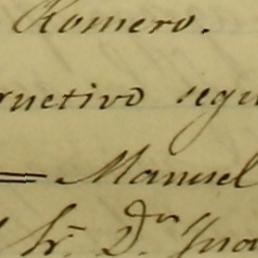 Romero.
ructivo segu
= Manuel
Sr. Dn. Jua